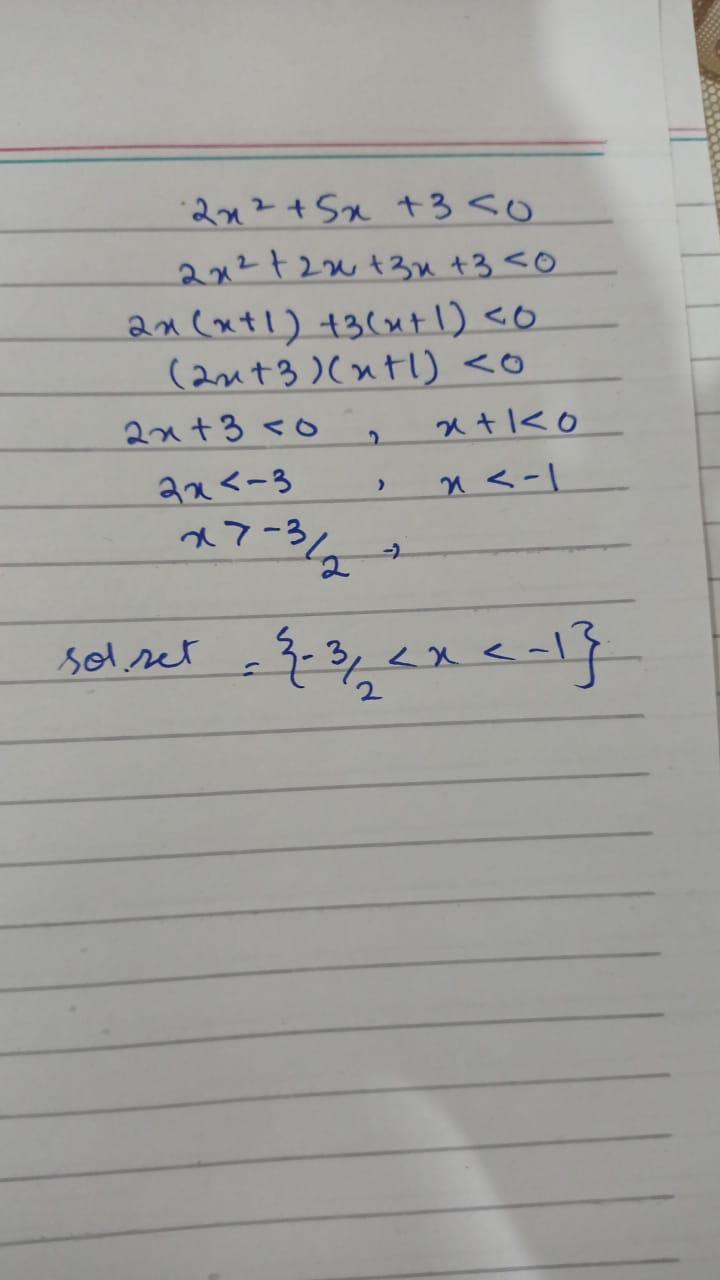 2x² + 5x + 3 < 0
2x² + 2x + 3x + 3 < 0
2x(x+1) + 3(x+1) < 0
(2x+3)(x+1) < 0
2x + 3 < 0 , x + 1 < 0
2x < -3 , x < -1
x > -3/2 →
sol.set = {-3/2 < x < -1}